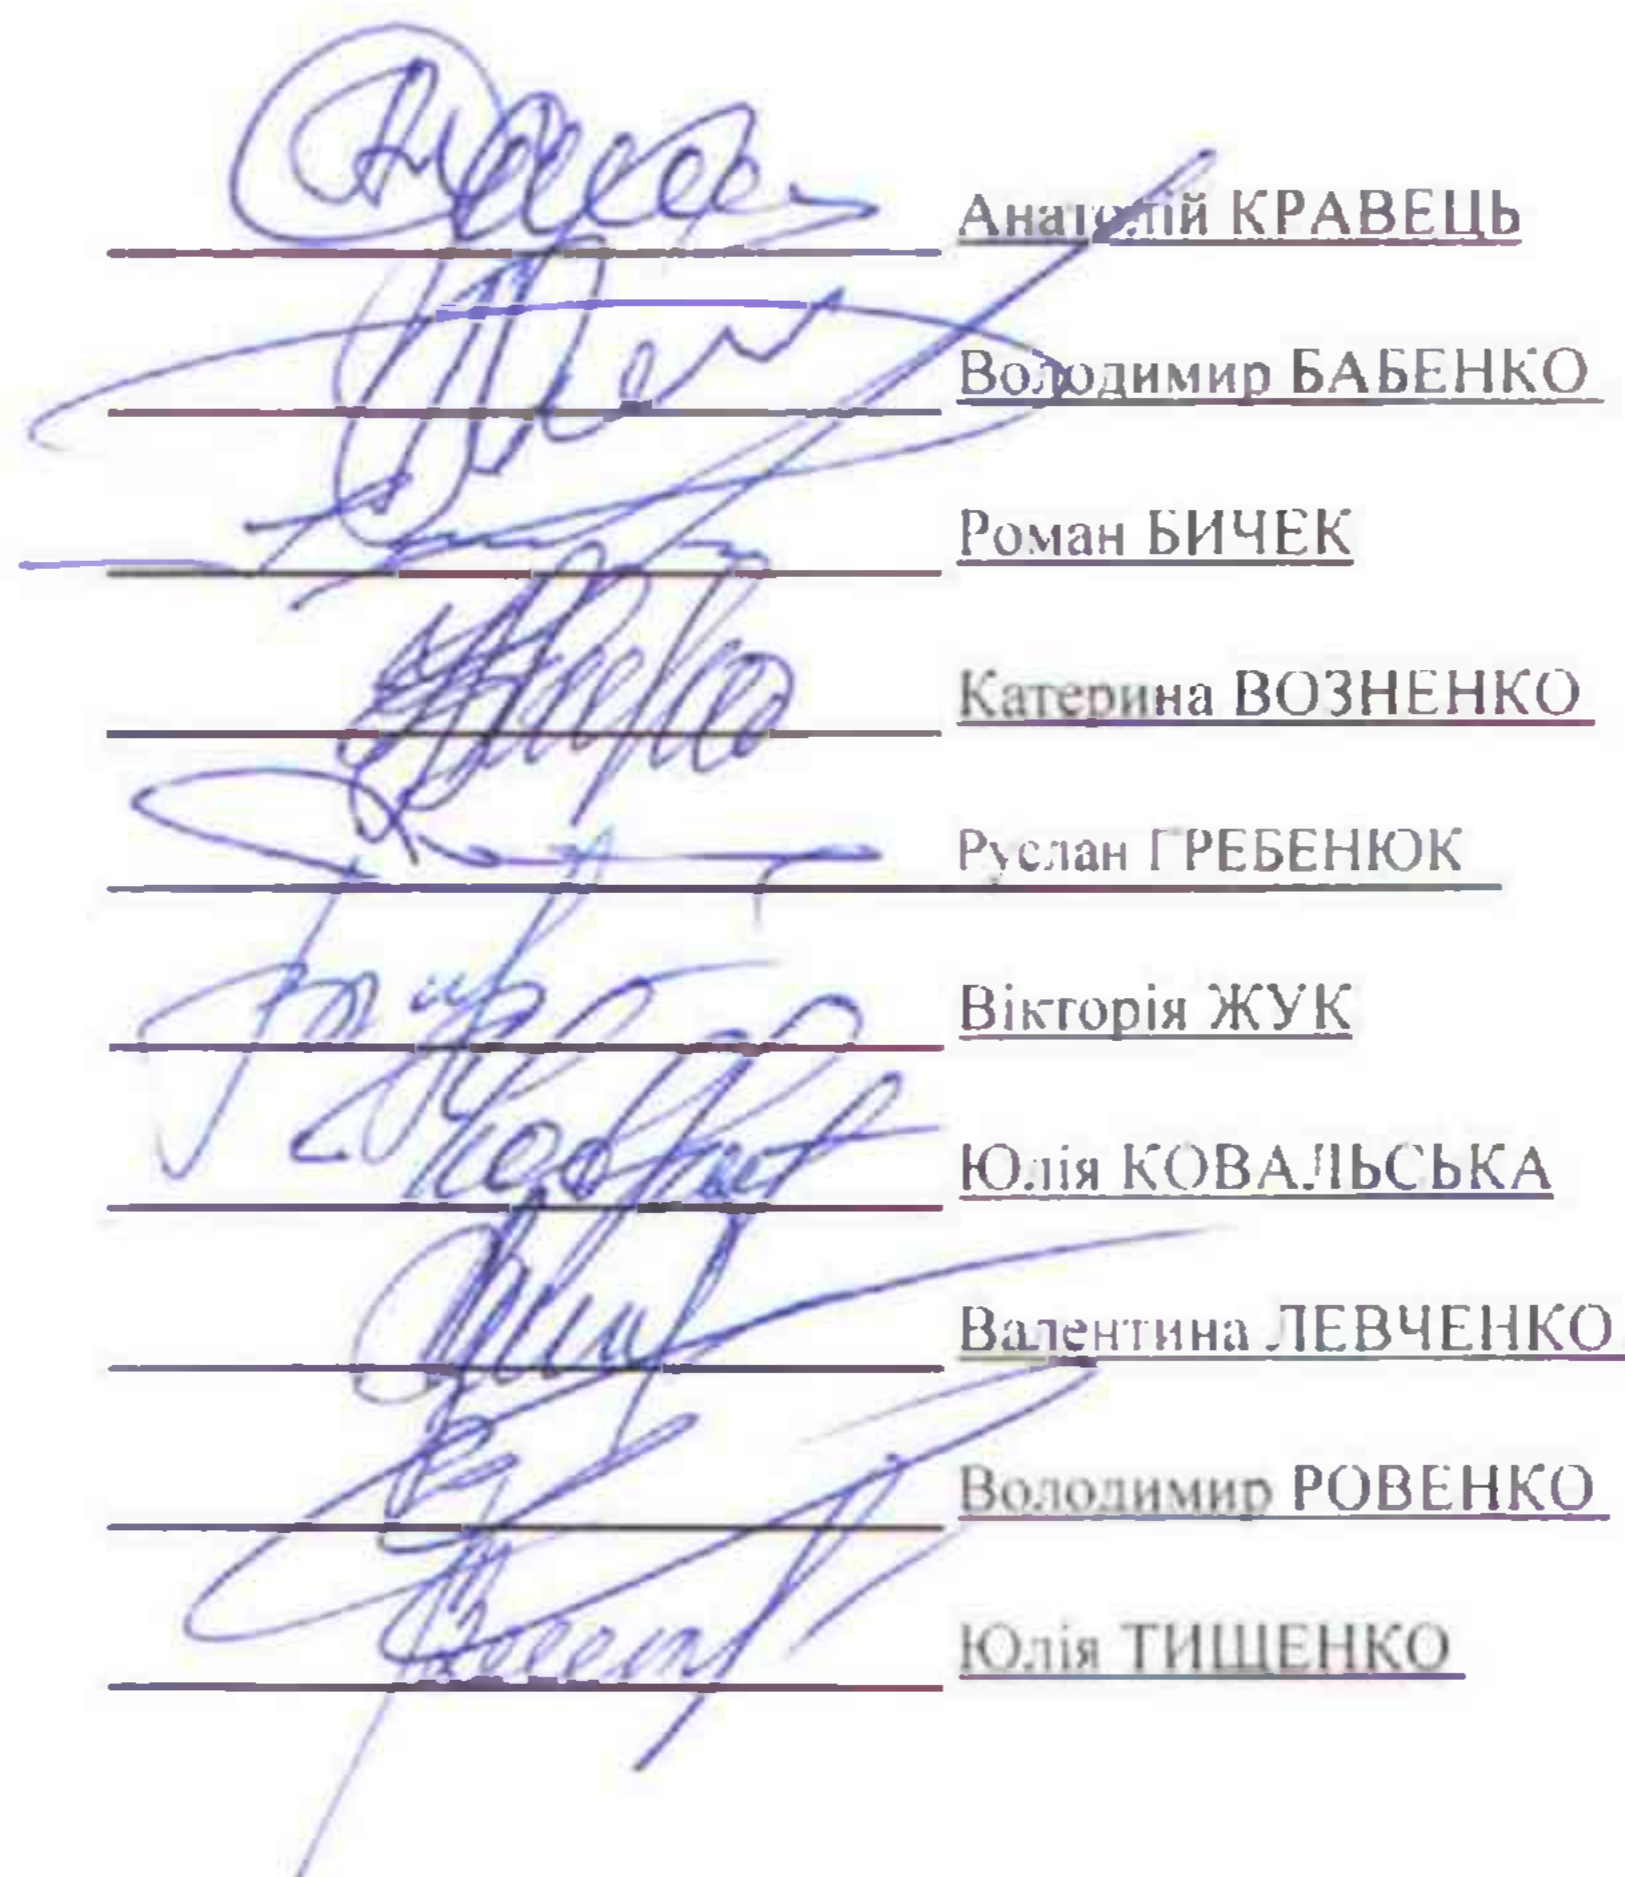 Анатолій КРАВЕЦЬ
Володимир БАБЕНКО
Роман БИЧЕК
Катерина ВОЗНЕНКО
Руслан ГРЕБЕНЮК
Вікторія ЖУК
Юлія КОВАЛЬСЬКА
Валентина ЛЕВЧЕНКО
Володимир РОВЕНКО
Юлія ТИЩЕНКО